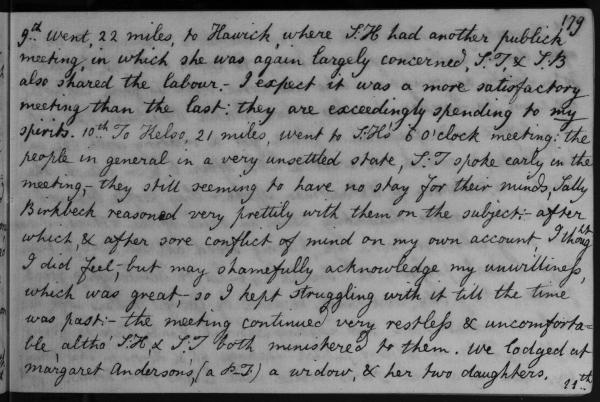 179
9th went, 22 miles, to Hawick, where S:H had another publick
meeting in which she was again largely concerned, S:T, & S:B
also shared the labour.- I expect it was a more satisfactory
meeting than the last: they are exceedingly spending to my
spirits. 10th To Kelso, 21 miles, went to S:H's 6 o'clock meeting: the
people in general in a very unsettled state, S:T spoke early in the
meeting,- they still seeming to have no stay for their minds, Sally
Birkbeck reasoned very prettily with them on the subject:- after
which, & after sore conflict of mind on my own account, I thought
I did feel,- but may shamefully acknowledge my unwillings,
which was great,- so I kept struggling with it till the time
was past:- the meeting continued very restless & uncomforta=
ble, altho' S:H, & S:T both ministered to them. We lodged at
Margaret Andersons, (a P-T) a widow, & her two daughters.
11th